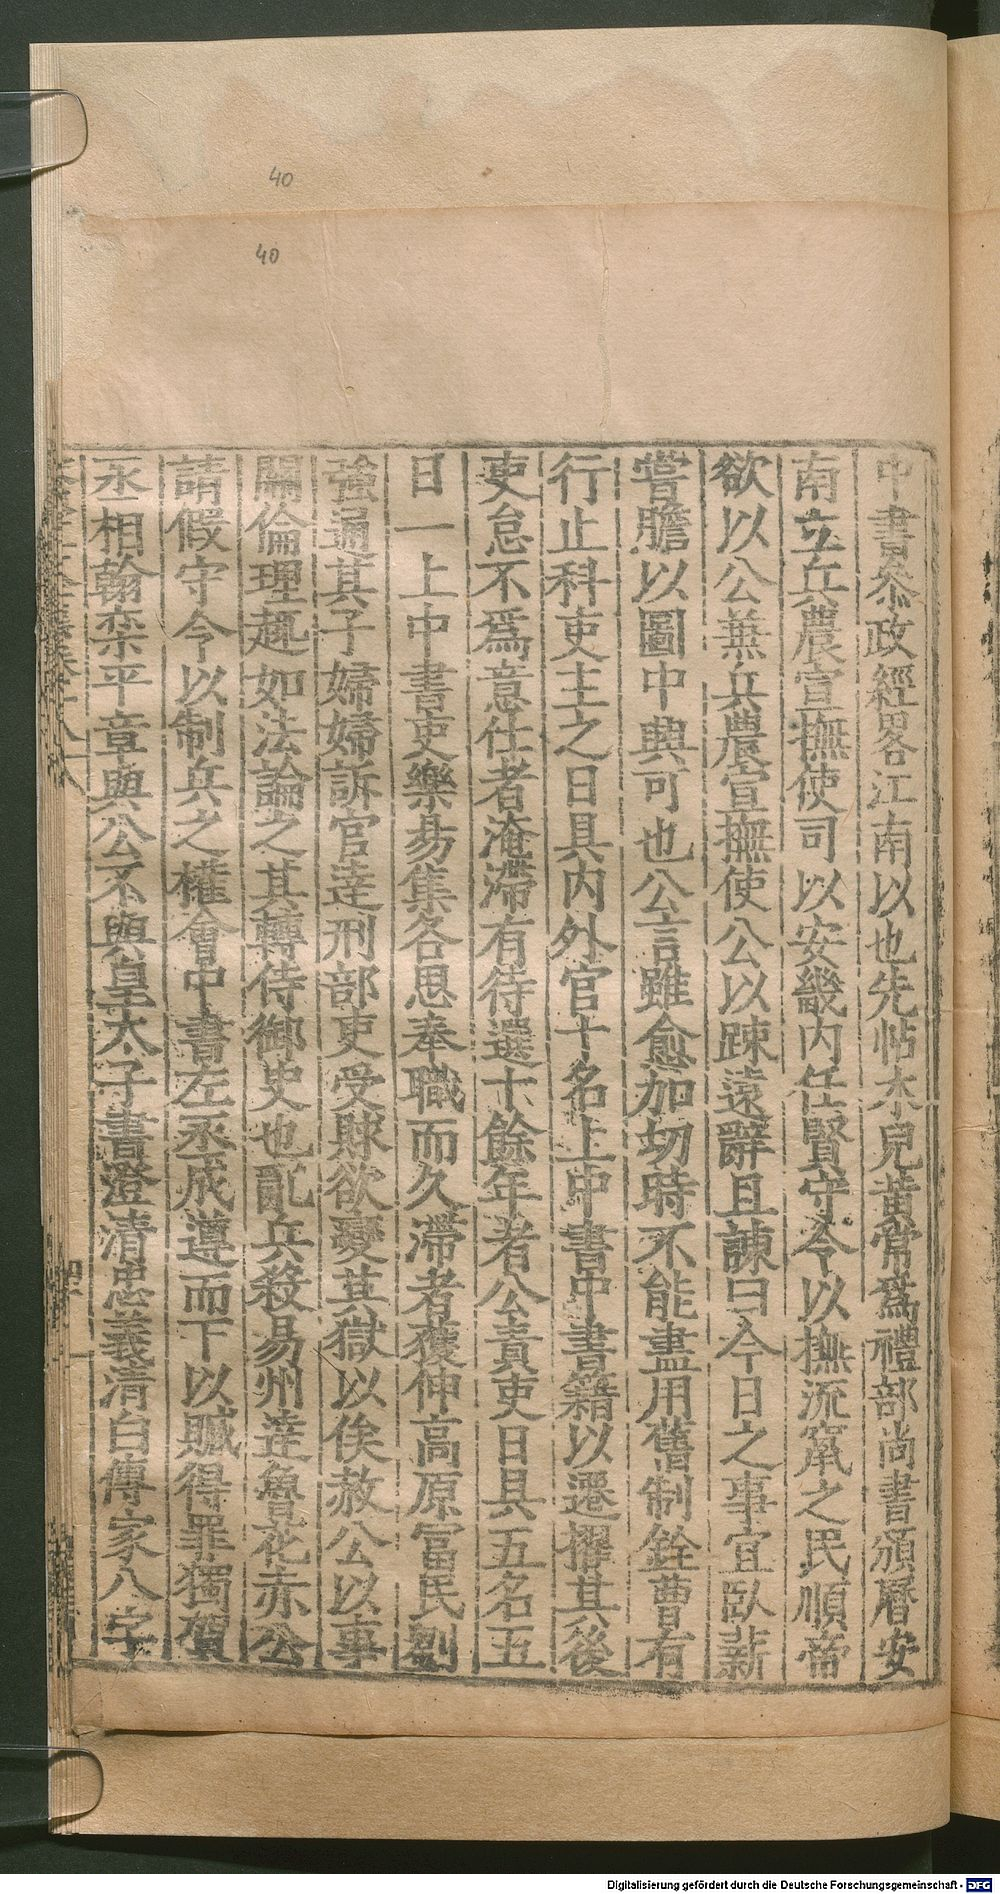 40
40
中書叅政經畧江南以也先帖木兒黄常爲禮部尚書頒曆安
南立兵農宣撫使司以安畿内任賢守令以撫流窜之民順帝
欲以公蒹兵農宣撫使公以踈遠辭且諫曰今日之事宜臥薪
嘗膽以圖中興可也公言雖愈加切時不能盡用舊制銓曹有
行止科吏主之日具内外官十名上中書中書籍以遷擢其後
吏怠不爲意仕者淹滯有待選十餘年者公責吏日具五名五
日一上中書吏樂昜集各思奉職而久滯者獲伸高原冨民劉
強通其子婦婦訴官逹刑部吏受賕欲變其獄以俟赦公以事
關倫理趣如法論之其轉侍御史也亂兵殺易州逹魯花赤公
請假守令以制兵之權會中書左丞成遵而下以贓得罪獨賀
丞相翰栾平章與公不與皇太子書澄清忠義清白傳家八字
Digitalisierung gefördert durch die Deutsche Forschungsgemeinschaft - DFG